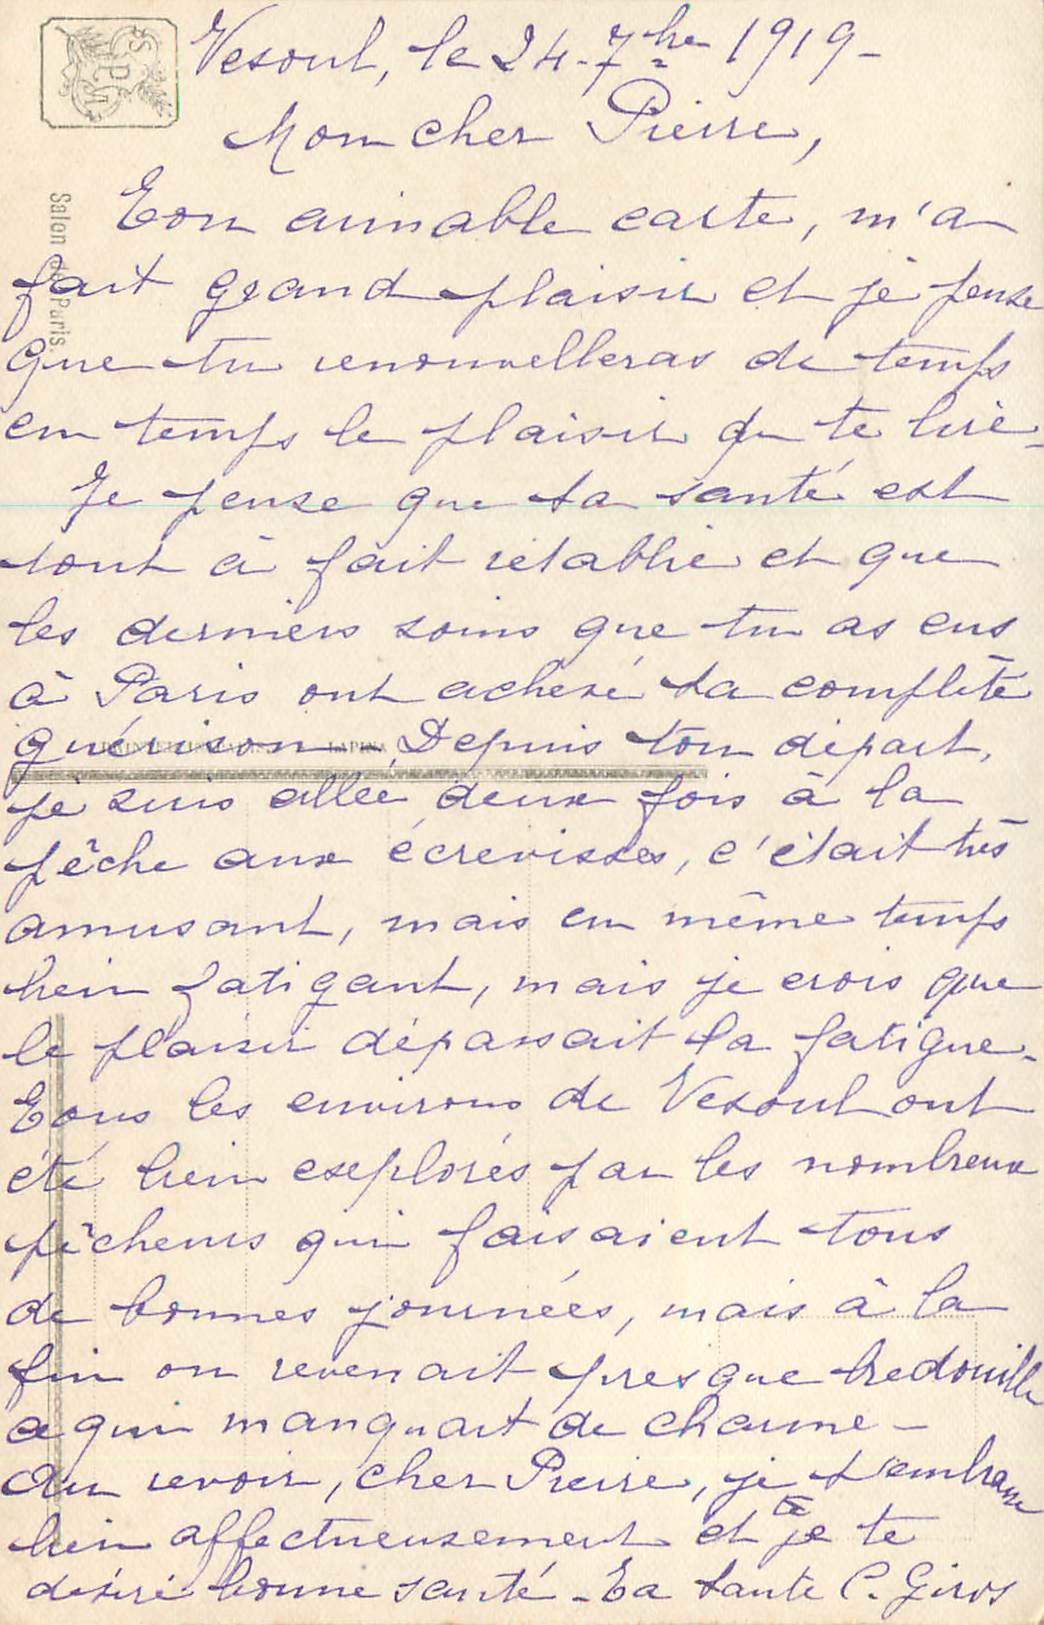 Vesoul, le 24-7bre 1919-
Mon cher Pierre,
Ton aimable carte, m'a
fait grand plaisir et je pense
que tu renouvelleras de temps
en temps le plaisir de te lire-
Je pense que ta santé est
tout à fait rétablie et que
les derniers soins que tu as eus
à Paris ont achevé ta complète
guérison. Depuis ton départ,
je suis allée deux fois à la
pêche aux écrevisses, c'était très
amusant, mais en même temps
bien fatigant, mais je crois que
le plaisir dépassait la fatigue-
Tous les environs de Vesoul ont
été bien explorés par les nombreux
pêcheurs qui faisaient tous
de bonnes journées, mais à la
fin on revenait presque bredouille
ce qui manquait de charme-
Au revoir, cher Pierre, je t'embrasse
bien affectueusement et je te
désire bonne santé-Ta tante C. Giros
Salon de Paris.